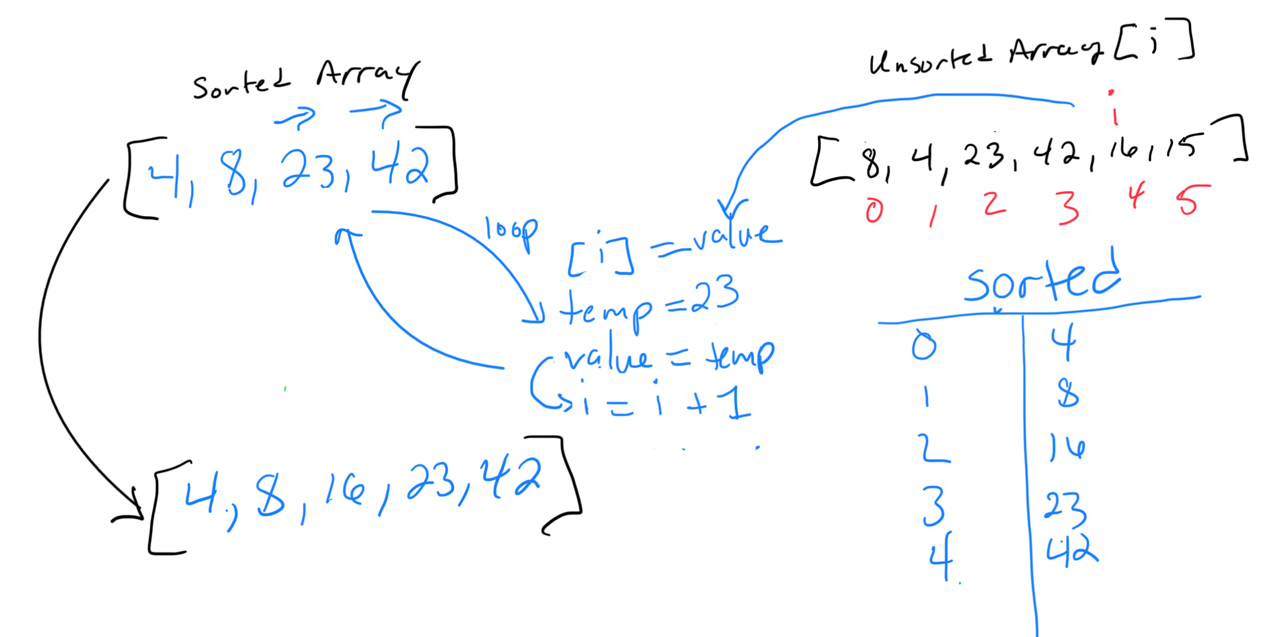 Sorted Array
[4, 8, 23, 42]
loop
[i] = value
temp = 23
value = temp
i = i + 1
[4, 8, 16, 23, 42]
Unsorted Array [i]
i
[8, 4, 23, 42, 16, 15]
0 1 2 3 4 5
sorted
0 4
1 8
2 16
3 23
4 42